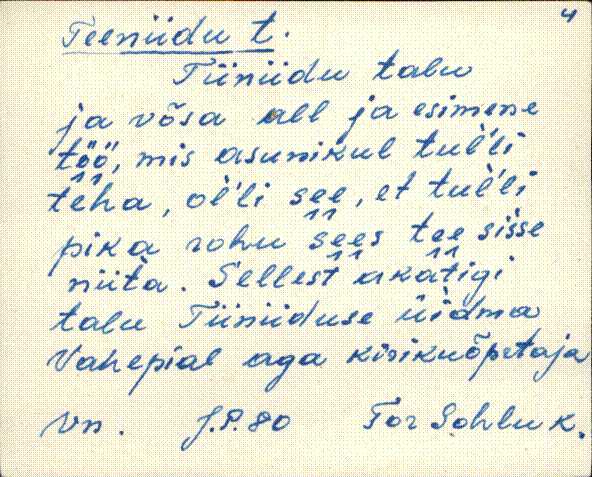 4
Teeniidu t.
Tiiniidu talu
ja võsa all ja esimene
töö, mis asunikul tul'li
teha, ol'li see, et tul'li
pika rohu sees tee sisse
niita. Sellest akatigi
talu Tiiniiduse üidma
Vahepial aga kirikuõpetaja
Vn. J.P. 80 Tor Sohlu k.